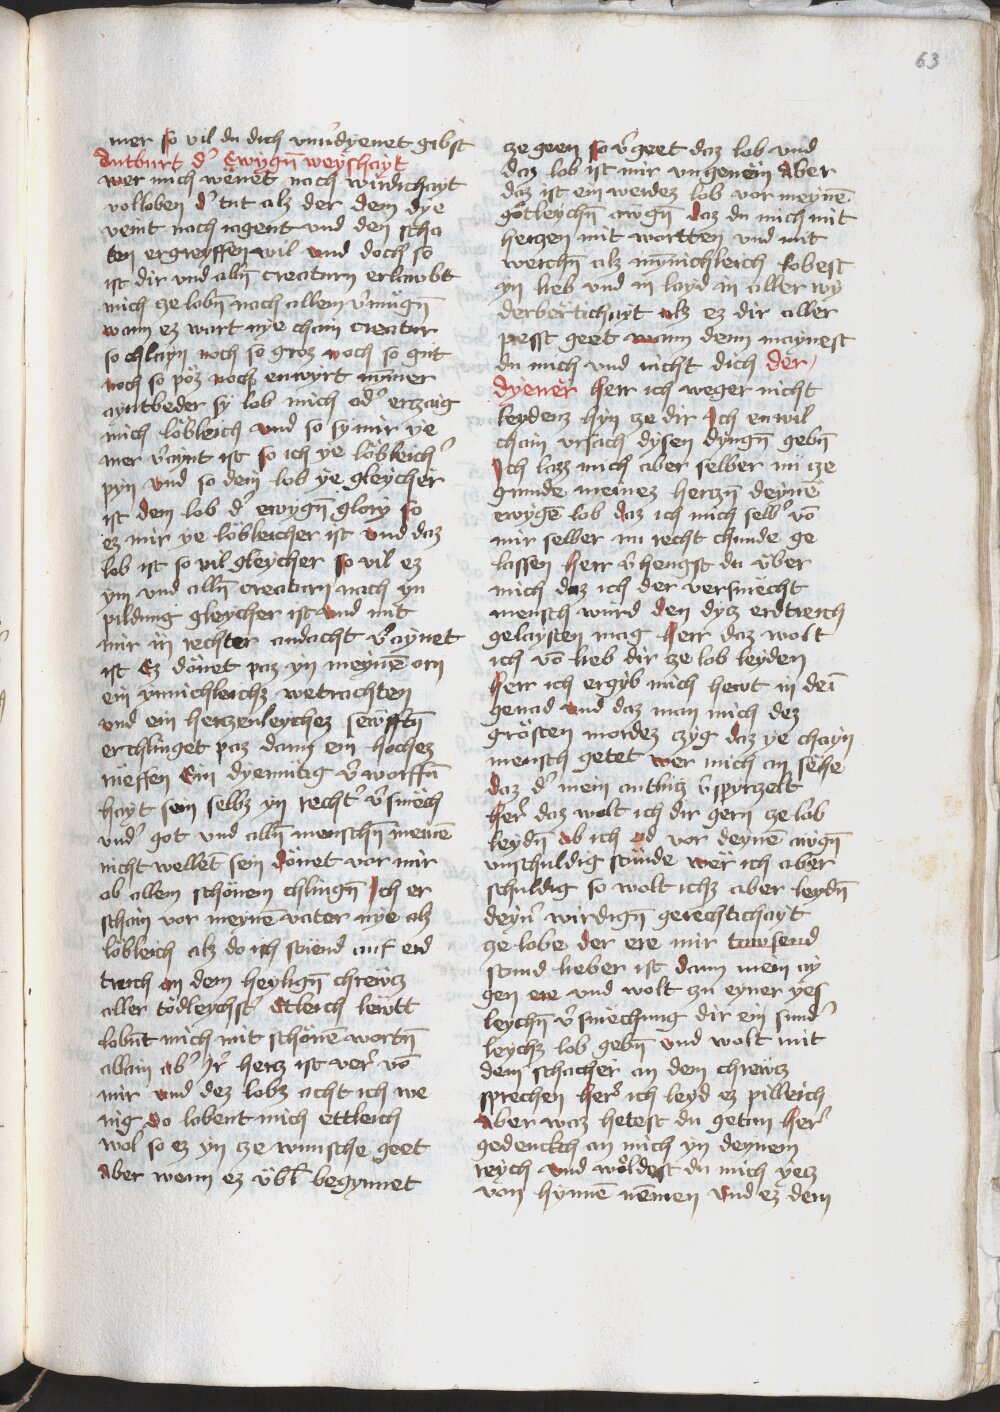 63
mer so vil du dich vnu'dyenet gibst
Antburt d' Ewygn̄ weyshayt
wer mich wënet nach wirdichayt
volloben d' tut alz der dem dye
veint nach iagent vnd den scha
ten ergreyffen wil vnd doch so
ist dir vnd allñ creaturn erlawbt
mich ze lobn̄ nach allem v'mügn̄
wann ez wart nye chain creatur
so chlayn noch so groz noch so gut
noch so pöz noch enwyrt nȳmer
ayntbeder sy lob mich od' erzaig
mich löbleich vnd so sy mir ye
mer v'aynt ist so ich ye löbleich'
pyn vnd so dein lob ye gleycher
ist dem lob d' ewygn̄ glory so
ez mir ye löbleicher ist vnd daz
lob ist so vil gleycher so vil ez
ym vnd alln̄ creaturn nach yn
pildung gleycher ist vnd mit
mir in rechter andacht v'aynet
ist Ez dönet paz yn meynē orn
ein ynnichleichz wetrachten
vnd ein herzenleychez sewfftn̄
erchlinget paz dann ein hochez
rüeffen Ein dyemütig v'worffn̄
hayt sein selbz yn recht' v'smëch
vnd' got vnd alln̄ menschn̄ niemē
nicht wellet sein dönet vor mir
ob allem schönem chlingn̄ Ich er
schain vor meynē vater nye alz
löbleich alz do ich stuend auf erd
treich an dem heyligñ chrewcz
aller tödleychst' Etleich lëwtt
lobnt mich mit schönē wortn̄
allain ab' Ir' hercz ist ver' vō
mir vnd dez lobz acht ich we
nig so lobent mich ettleich
wol so ez yn ze wunsche geet
Aber wenn ez vbl' begynnet
ze geen so v'geet daz lob vnd
daz lob ist mir vngenëm Aber
daz ist ein werdez lob vor meynē
götleychn̄ awgn̄ daz du mich mit
herczen mit wartten vnd mit
werchn̄ alz ynnichleich lobest
yn lieb vnd in layd in aller wy
derbërtichayt alz ez dir aller
pesst geet wann denn maynest
du mich vnd nicht dich der
dyener Herr ich weger nicht
leydenz hyn ze dir Ich enwil
chain vrsach dysen dyngn̄ gebn̄
Ich lazz mich aber selber nu ze
grunde meinez herczn̄ deynē
ewygē lob daz ich mich selb' vō
mir selber nu recht chunde ge
lassen Herr v'hengst du vber
mich daz ich der versmëcht
mensch würd den dycz erdtreich
gelaysten mag Herr daz wolt
ich vō lieb dir ze lob leyden
Herr ich ergyb mich hewt in dei
genad vnd daz man mich dez
grösten mordez czyg daz ye chayn
mensch getet wer mich an sëhe
daz d' mein antlütz v'spyrczelt
Her' daz wolt ich dir gern ze lob
leydn̄ ob ich od vor deynē awgn̄
vnschuldig stünde wër ich aber
schuldig so wolt ichz aber leydn̄
deyn' wirdign̄ gerechtichayt
ze lobe der ere mir tawsend
stund lieber ist dann mein ay
gen ere vnd wolt zu eyner yes
leychn̄ v'smechung dir ein sund'
leychz lob gebn̄ vnd wolt mit
dem schacher an dem chrewcz
sprechen Her' ich leyd ez pilleich
Aber waz hetest du getan Her'
gedenckch an mich yn deynem
reych vnd woldest du mich yecz
von hynnē nemen vnd ez dem